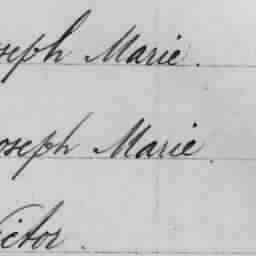 oseph Marie.
oseph Marie.
ictor.